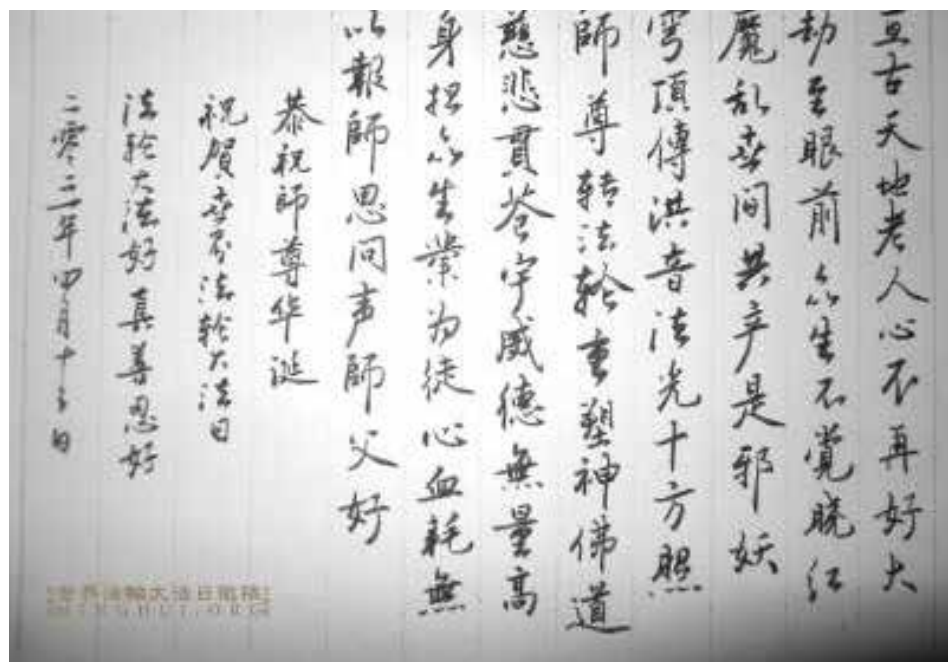 亘古天地老人心不再好大
劫至眼前众生不觉晓红
魔乱世间共产是邪妖
穹頂傳洪音法光十方照
師尊转法轮重塑神佛道
慈悲貫苍宇威德無量高
身担众生業为徒心血耗無
以報師恩问声師父好
恭祝師尊华诞
祝賀世界法轮大法日
法轮大法好真善忍好
二零二一年四月十三日
世界法輪大法日徵稿
MINGHUI.ORG